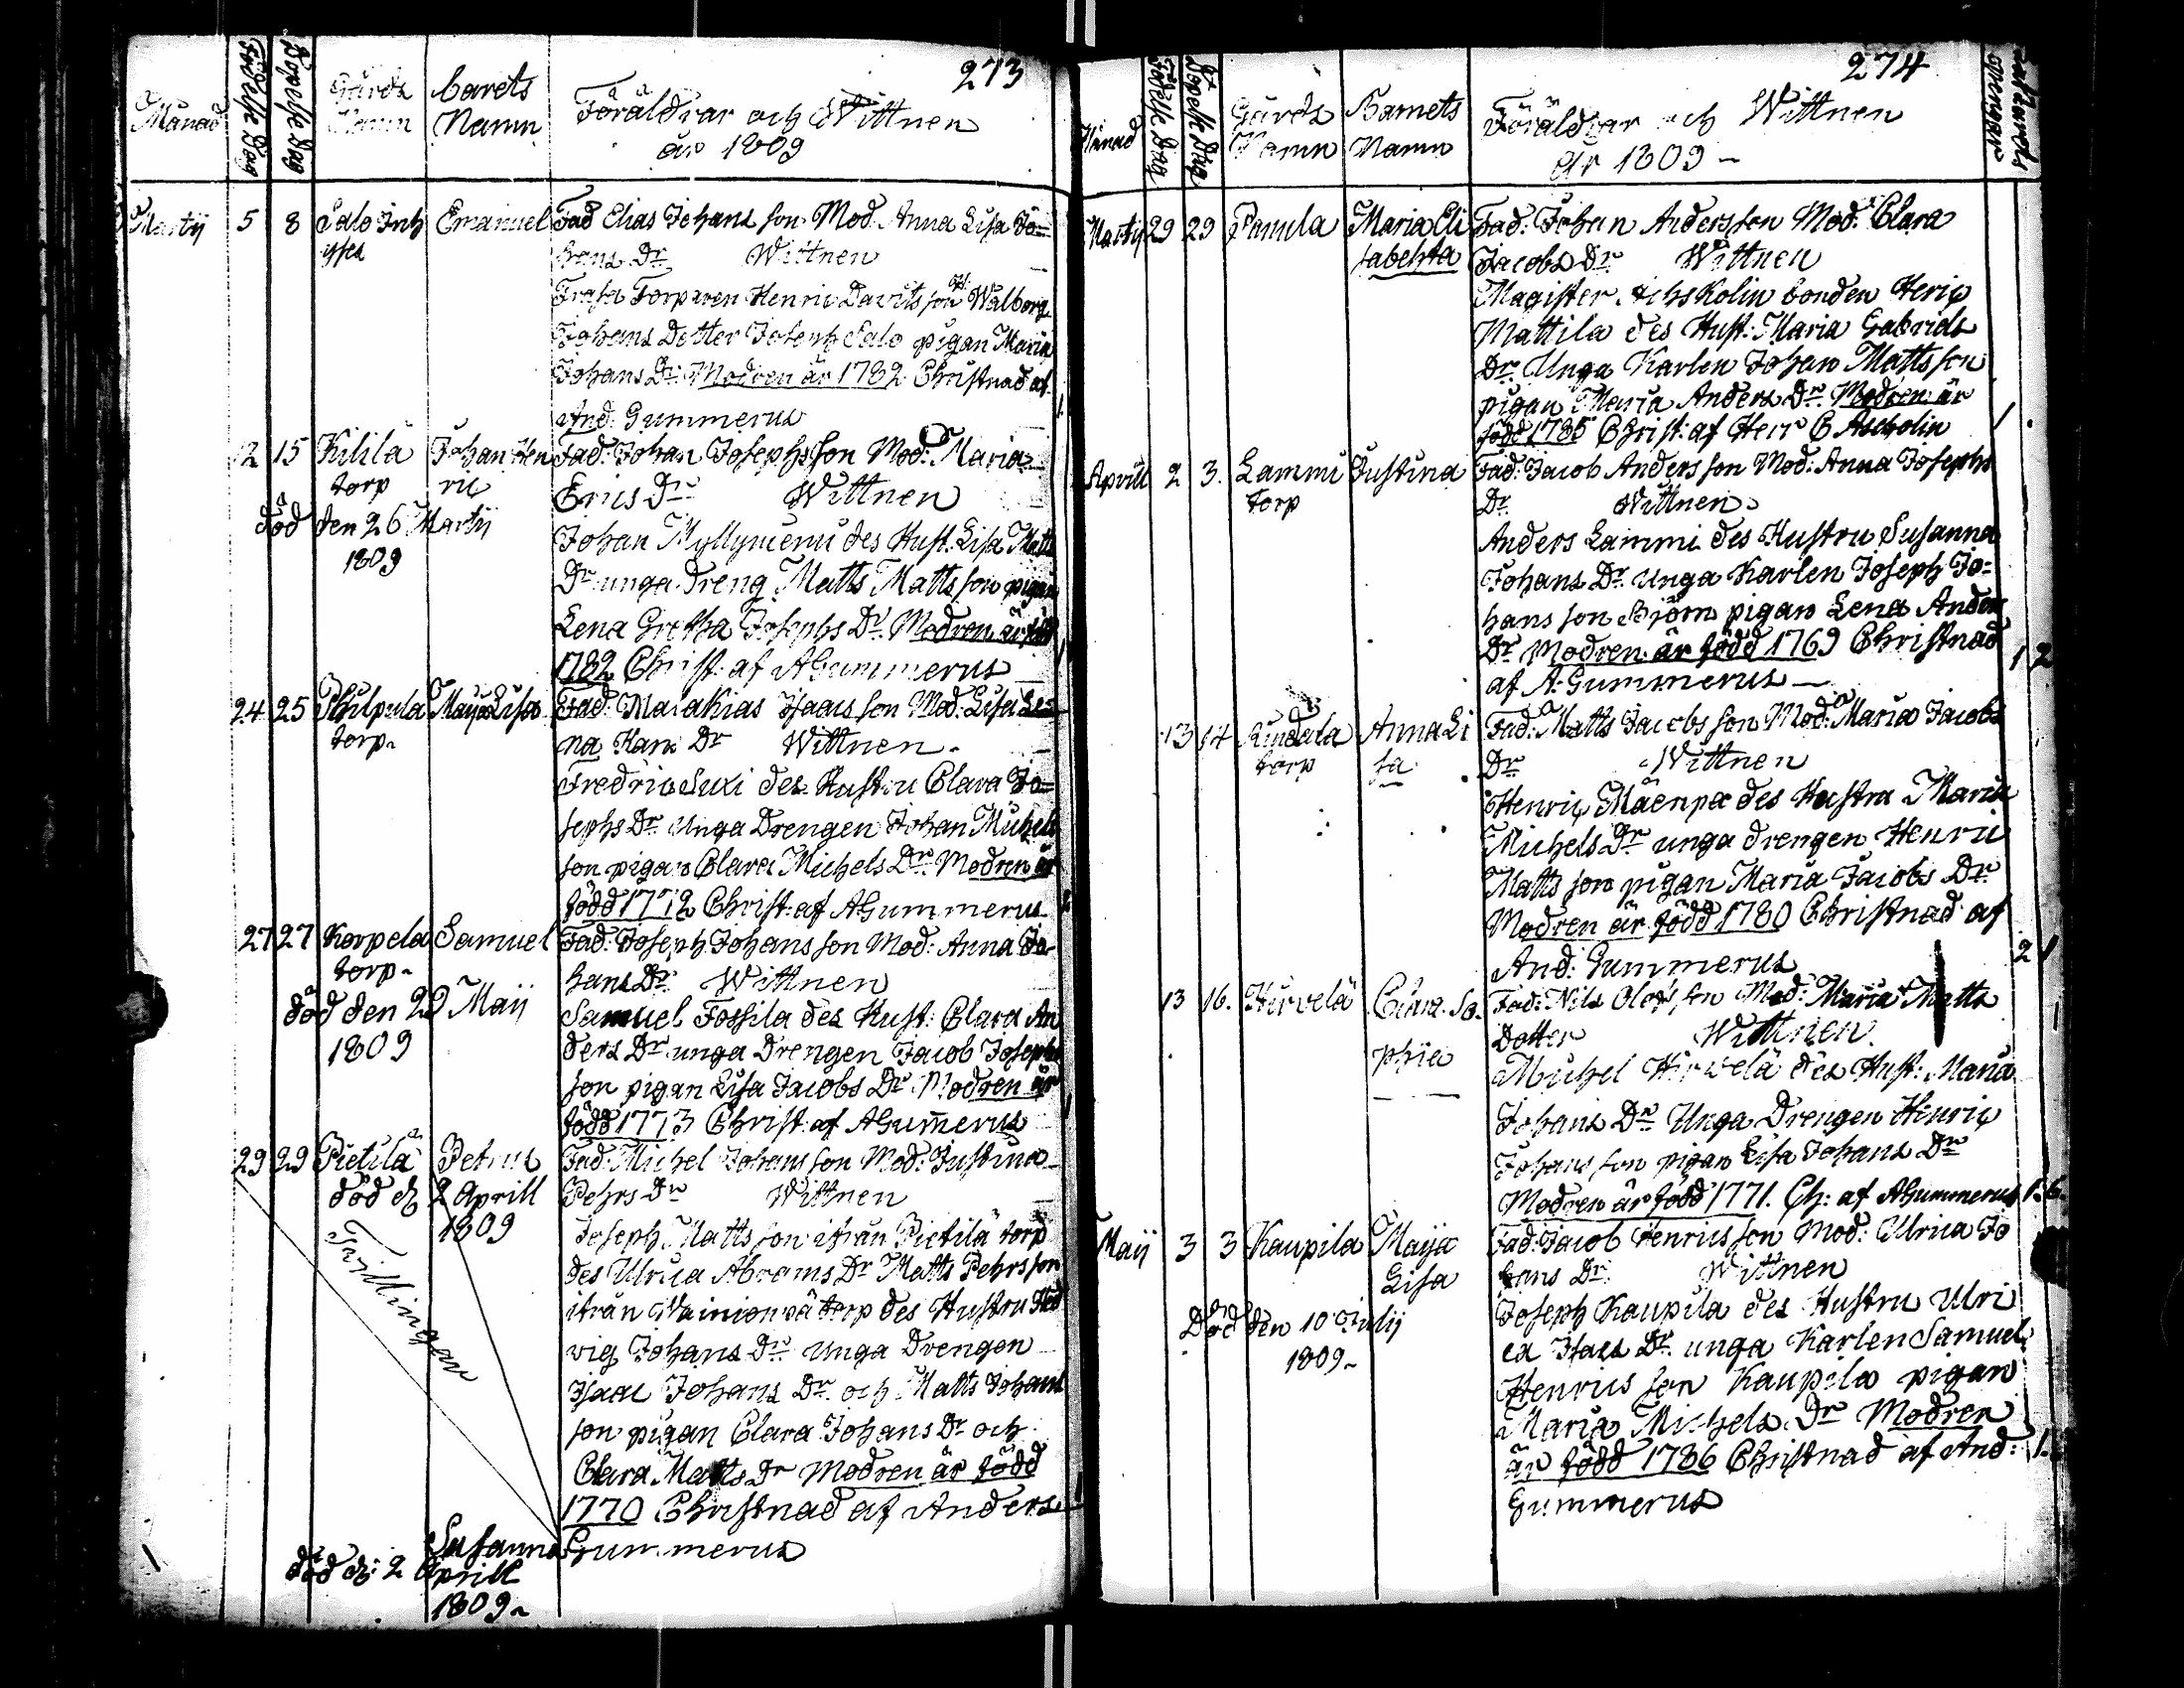 273
Månad Födelse Dag Döpelse Dag Gårds Namn barets Namn Föräldrar och Wittnen
år 1809
Martij 5 8 Salo Inh Emanuel Fad Elias Johans son Mod. Anna Lisa Jo=
yses hans Dr Wittnen
Torparen Henric Davits son Walborg
Johans Dotter Joseph Salo pigan Maria
Johans Dr. Modren är 1782 Christnad af
And. Gummerus
12 15 Kihlä Johan Hen Fad: Johan Josephs son Mod: Maria
torp ric Erics Dr Wittnen
död den 26 Martij
Johan Myllymeni des Hust. Lisa Matts
1809
Dr unga Dreng Matts Matts son pigan
Lena Gretha Josephs Dr. Modren är född
1782 Christ. af AGummerus
24 25 Philpula Maija Lisa Fad: Malakias Isaacs son Mod: Lisa Le=
torp na Kans Dr Wittnen
Fredric Suxi des Hustru Clara Jo=
sephs Dr unga Drengen Johan Michels
son pigan Clara Michels Dr. Modren är
född 1772 Christ: af AGummerus
27 27 Korpela Samuel Fad: Joseph Johans son Mod: Anna Jo
torp hans Dr. Wittnen
död den 29 Maij Samuel Fossila des Hust: Clara An
1809 ders Dr unga Drengen Jacob Josephs
son pigan Lisa Jacobs Dr Modren är
född 1773 Christ: af AGummerus
29 29 Pietilä Petrus Fad: Michel Johans son Mod: Justina
död d 2 Aprill Pehrs Dr Wittnen
1809
Joseph Matts son ifrån Pietilä torp
Tvillingar
des Ulrica Abrams Dr Matts Pehrs son
ifrån Wainionpä torp des Hustru Hed
vig Johans Dr unga Drengen
Isaac Johans Dr och Matts Johans
son pigan Clara Johans Dr och
Clara Matts Dr Modren är född
1770 Christnad af Anders
Susanna Gummerus
död d: 2 Aprill
1809
274
Månad Födelse Dag Döpelse Dag Gårds Namn Barnets Namn Föräldrar och Wittnen
År 1809
Martij 29 29 Pamila Maria Eli Fad: Johan Anders son Mod: Clara
sabehta Jacobs Dr Wittnen
Magister bonden Heric
Mattila des Hust: Maria Gabriels
Dr. Unga Karlen Johan Matts son
pigan Maria Anders Dr. Modren är
född 1785 Christ: af Herr C Ascholin
Aprill 2 3. Lammi Justina Fad: Jacob Anders son Mod: Anna Josephs
torp Dr Wittnen
Anders Lammi des Hustru Susanna
Johans Dr. unga Karlen Joseph Jo=
hans son Björn pigan Lena Anders
Dr Modren är född 1769 Christnad 1 2
af A: Gummerus
13 14 Kindala Anna Li Fad: Matts Jacobs son Mod: Maria Jacobs
torp sa Dr Wittnen
Henric Mäenpä des Hustru Maria
Michels Dr unga drengen Henric
Matts son pigan Maria Jacobs Dr
Modren är född 1780 Christnad af
And: Gummerus 2 1
13 16. Hirvelä Clara So. Fad: Nils Olofs son Mod: Maria Matts
phia Dotter Wittnen
Michel Hirvelä des Hust: Maria
Johans Dr Unga Drengen Henric
Johans son pigan Lisa Johans Dr
Modren är född 1771. Ch: af AGummerus 1.6.
Maij 3 3 Kaupila Maija Fad: Jacob Henrics son Mod: Ulrica Jo
Lisa hans Dr. Wittnen
Död den 10 Julij Joseph Kaupila des Hustru Ulri
1809 ca Isacs Dr. unga Karlen Samuel
Henrics son Kaupila pigan
Maria Michels Dr Modren
är född 1786 Christnad af And: 1.
Gummerus